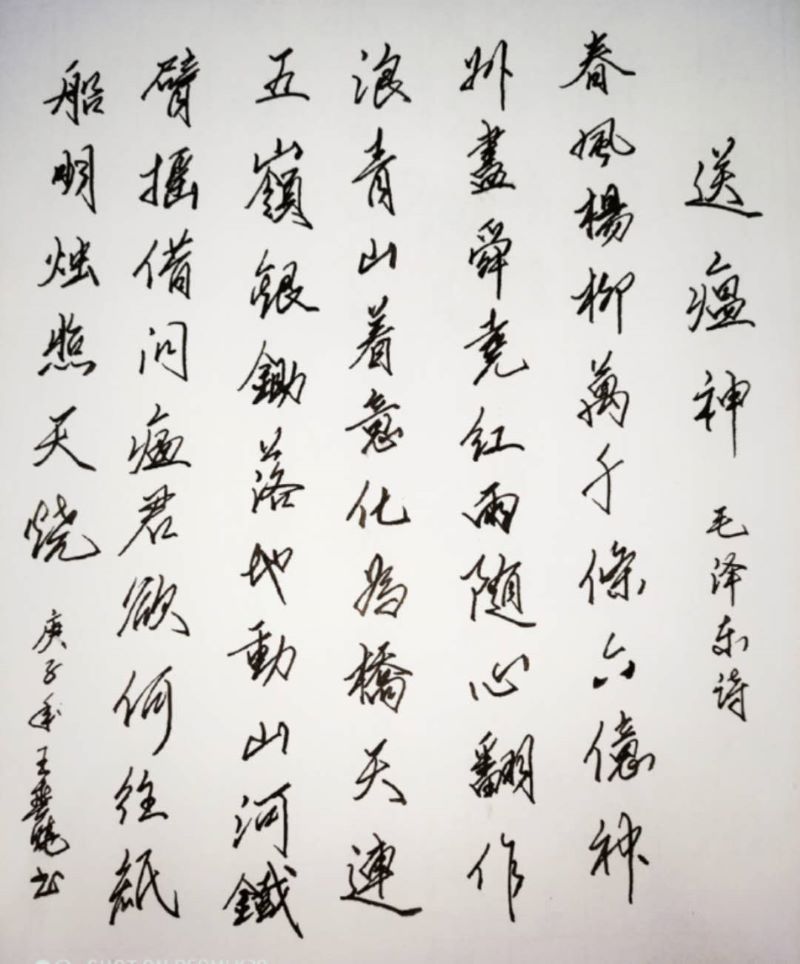 送瘟神 毛泽东诗
春風楊柳萬千條六億神
州盡舜堯紅雨随心翻作
浪青山着意化為橋天連
五嶺銀鋤落地動山河鐵
臂摇借问瘟君欲何往紙
船明烛照天烧 庚子年王书
SHOT ON REDMI K20